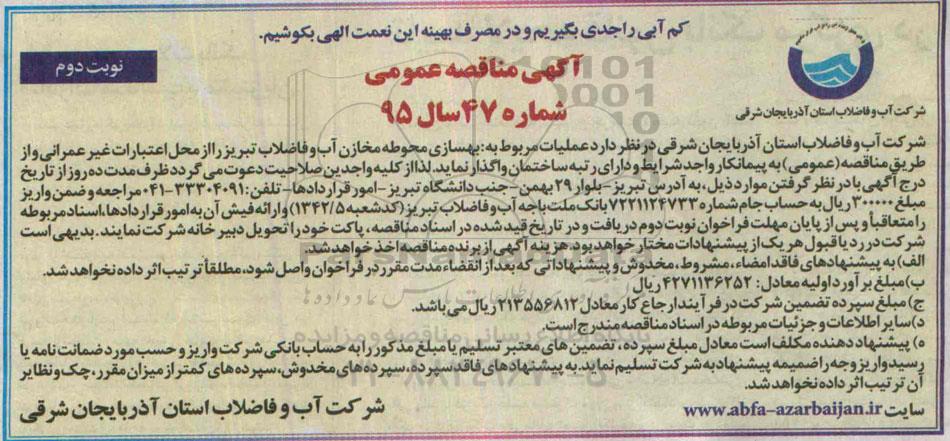 کم آبی را جدی بگیریم و در مصرف بهینه این نعمت الهی بکوشیم.
نوبت دوم
آگهی مناقصه عمومی
شماره ۴۷ سال ۹۵
شرکت آب و فاضلاب استان آذربایجان شرقی
شرکت آب و فاضلاب استان آذربایجان شرقی در نظر دارد عملیات مربوط به: بهسازی محوطه مخازن آب و فاضلاب تبریز را از محل اعتبارات غیر عمرانی و از
طریق مناقصه (عمومی) به پیمانکار واجد شرایط و دارای رتبه ساختمان واگذار نماید. لذا از کلیه واجدین صلاحیت دعوت می گردد ظرف مدت ده روز از تاریخ
درج آگهی با در نظر گرفتن موارد ذیل، به آدرس تبریز - بلوار ۲۹ بهمن - جنب دانشگاه تبریز - امور قراردادها - تلفن: ۳۳۳۰۴۰۹۱-۰۴۱ مراجعه و ضمن واریز
مبلغ ۳۰۰۰۰۰ ریال به حساب جام شماره ۷۲۲۱۱۲۴۷۳۳ بانک ملت باجه آب و فاضلاب تبریز (کد شعبه ۱۳۴۲/۵) و ارائه فیش آن به امور قراردادها، اسناد مربوطه
را متعاقباً و پس از پایان مهلت فراخوان نوبت دوم دریافت و در تاریخ قید شده در اسناد مناقصه، پاکت خود را تحویل دبیرخانه شرکت نمایند. بدیهی است
شرکت در رد یا قبول هر یک از پیشنهادات مختار خواهد بود. هزینه آگهی از برنده مناقصه اخذ خواهد شد.
الف) به پیشنهادهای فاقد امضاء، مشروط، مخدوش و پیشنهاداتی که بعد از انقضاء مدت مقرر در فراخوان واصل شود، مطلقاً ترتیب اثر داده نخواهد شد.
ب) مبلغ برآورد اولیه معادل: ۴۲۷۱۱۳۶۲۵۲ ریال
ج) مبلغ سپرده تضمین شرکت در فرآیند ارجاع کار معادل ۲۱۳۵۵۶۸۱۲ ریال می باشد.
د) سایر اطلاعات و جزئیات مربوطه در اسناد مناقصه مندرج است.
ه) پیشنهاد دهنده مکلف است معادل مبلغ سپرده، تضمین های معتبر تسلیم یا مبلغ مذکور را به حساب بانکی شرکت واریز و حسب مورد ضمانت نامه یا
رسید واریز وجه را ضمیمه پیشنهاد به شرکت تسلیم نماید. به پیشنهادهای فاقد سپرده، سپرده های مخدوش، سپرده های کمتر از میزان مقرر، چک و نظایر
آن ترتیب اثر داده نخواهد شد.
سایت www.abfa-azarbaijan.ir
شرکت آب و فاضلاب استان آذربایجان شرقی